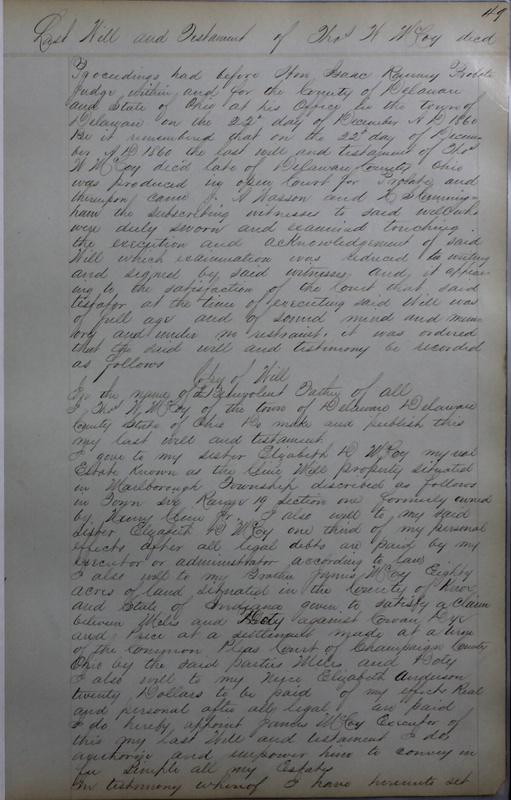 49
Last Will and Testament of Thos W McCoy decd
Proceedings had before Hon Isaac Ranney Probate
Judge within and for the County of Delaware
and State of Ohio at his Office in the town of
Delaware on the 22d day of December A D 1860
Be it remembered that on the 22d day of Decem-
ber A D 1860 the last will and testament of Thos
W McCoy decd late of Delaware County Ohio
was produced in open Court for Probate and
thereupon came J. A Wasson and Cunning-
ham the subscribing witnesses to said will who
were duly sworn and examined touching
the execution and acknowledgement of said
Will which examination was reduced to writing
and signed by said witnesses and it appear-
ing to the satisfaction of the Court that said
testator at the time of executing said Will was
of full age and of sound mind and mem-
ory and under no restraint, it was ordered
that the said will and testimony be recorded
as follows
Copy of Will
In the name of Benevolent Father of all
I Thos W McCoy of the town of Delaware Delaware
County State of Ohio Do make and publish this
my last will and testament
I give to my sister Elizabeth D McCoy my real
Estate Known as the Cline Mill property situated
in Marlborough Township discribed as follows
in Town six Range 19 section one formerly owned
by Henry Cline Sr. I also will to my said
Sister Elizabeth D McCoy one third of my personal
effects after all legal debts are paid by my
executor or administrator according to law
I also will to my Brother James McCoy Eighty
acres of land situated in the County of Knox
and State of Indiana given to satisfy a claim
between Miles and Doty against Cowan Dye
and Price at a settlement made at a term
of the Common Pleas Court of Champaign County
Ohio by the said parties Miles and Doty
I also will to my Niece Elizabeth Anderson
twenty Dollars to be paid of my effects Real
and personal after all legal are paid
I do hereby appoint James McCoy Executor of
this my last Will and testament I do
authorize and empower him to convey in
fee Simple all my Estate
In testimony whereof I have hereunto set